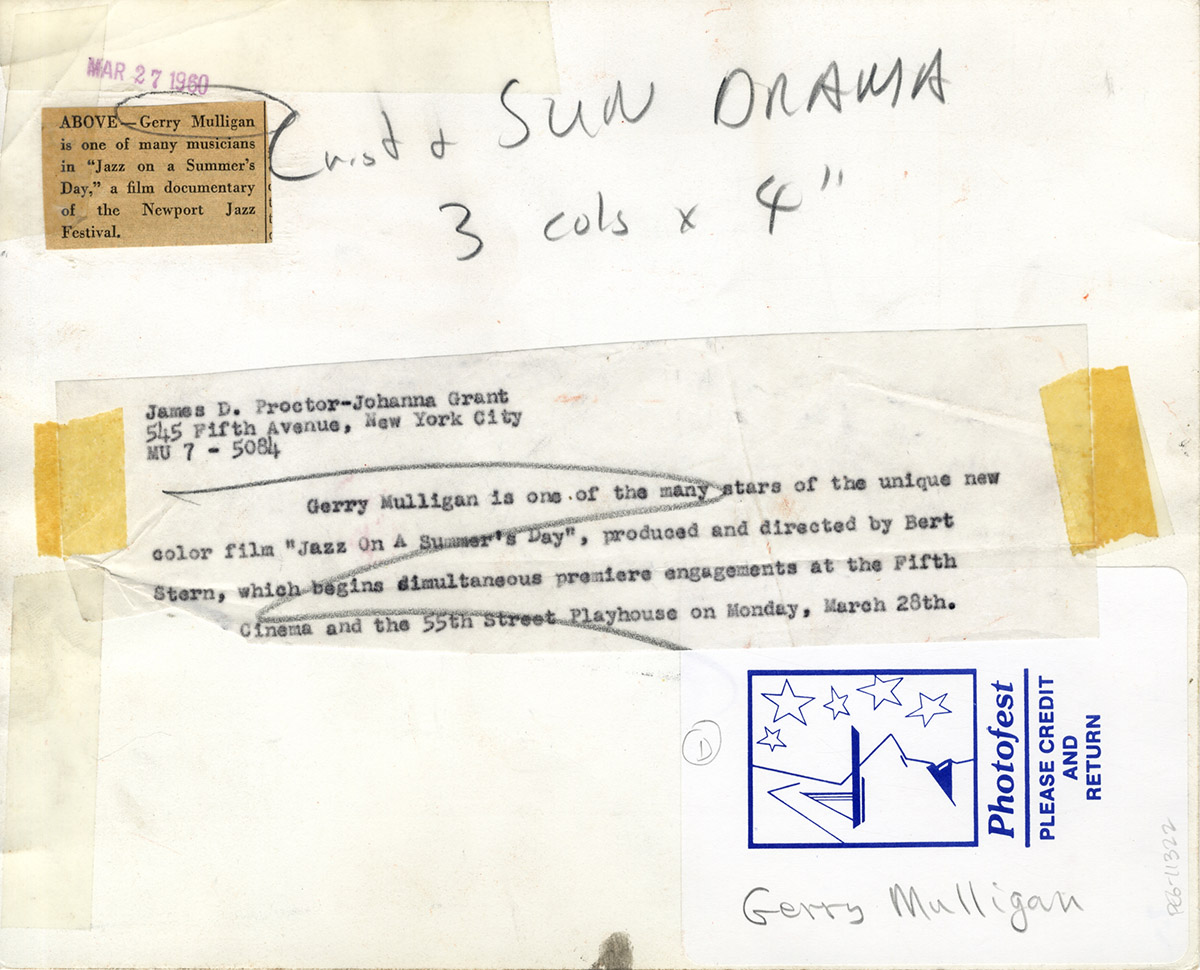 MAR 27 1960
ABOVE—Gerry Mulligan
is one of many musicians
in “Jazz on a Summer's
Day,” a film documentary
of the Newport Jazz
Festival.
SUN DRAMA
3 cols x 4"
James D. Proctor-Johanna Grant
545 Fifth Avenue, New York City
MU 7 - 5084
Gerry Mulligan is one of the many stars of the unique new
color film "Jazz On A Summer's Day", produced and directed by Bert
Stern, which begins simultaneous premiere engagements at the Fifth
Cinema and the 55th Street Playhouse on Monday, March 28th.
D
Photofest
PLEASE CREDIT
AND
RETURN
Gerry Mulligan